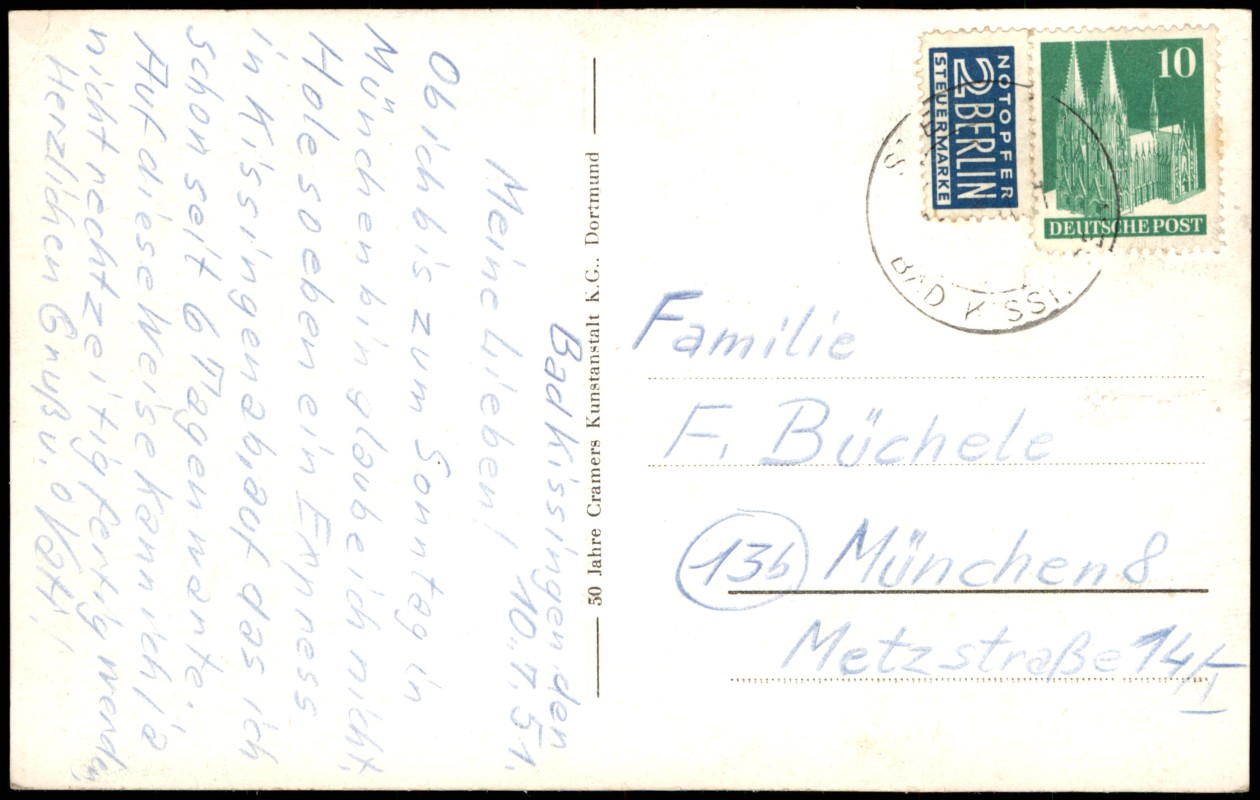 Bad Kissingen, den
10.7.51.
Meine Lieben!
Ob ich bis zum Sonntag in
München bin glaube ich nicht.
Hole soeben ein Express
in Kissingen ab, auf das ich
schon seit 6 Tagen warte.
Auf diese Weise kann ich ja
nicht rechtzeitig fertig werden.
Herzlichen Gruß u. Vati!
50 Jahre Cramers Kunstanstalt K.G., Dortmund
NOTOPFER
2 BERLIN
STEUERMARKE
10
DEUTSCHE POST
BAD KISSI
Familie
F. Büchele
13b München 8
Metzstraße 14/I